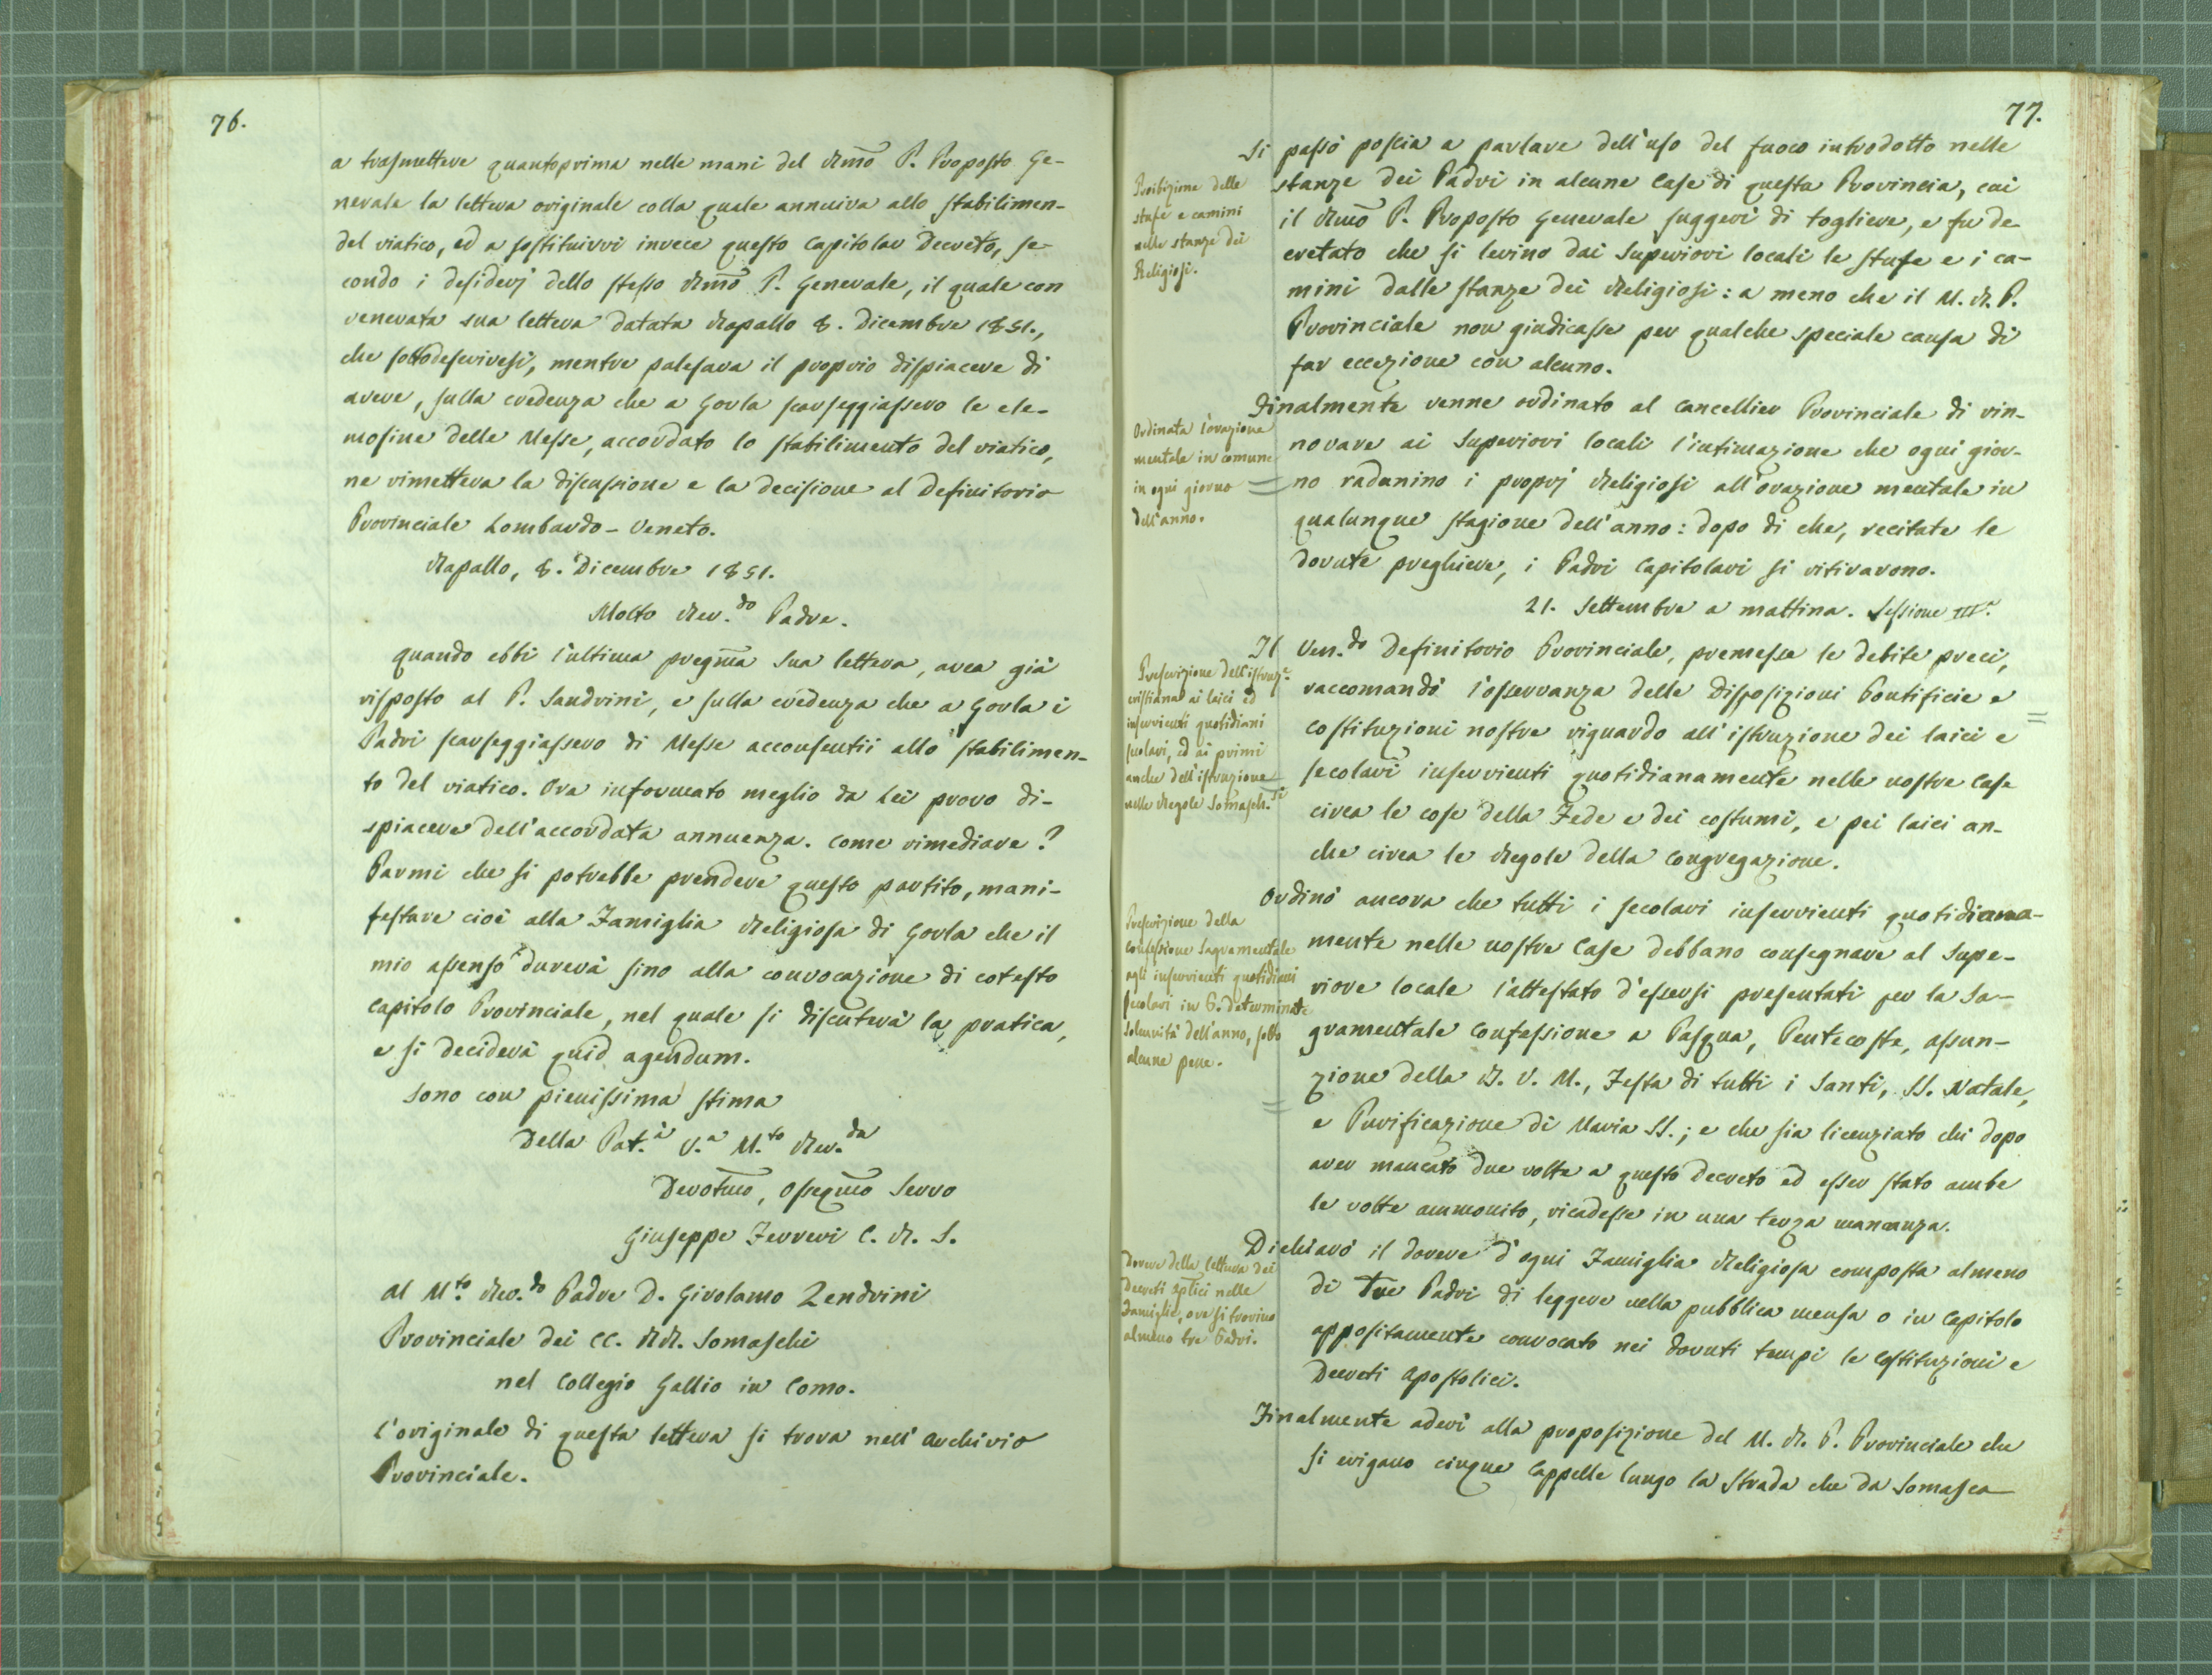 76.
a trasmettere quantoprima nelle mani del Rmo P. Proposto Ge-
nerale la lettera originale colla quale annuiva allo stabilimen-
del viatico, ed a sostituirvi invece questo Capitolar Decreto, se-
condo i desiderj dello stesso Rmo P. Generale, il quale con
venerata sua lettera datata Rapallo 8. Dicembre 1851.,
che sottodescrivesi, mentre palesava il proprio dispiacere di
avere, sulla credenza che a Gorla scarseggiassero le ele-
mosine delle Messe, accordato lo stabilimento del viatico,
ne rimetteva la discussione e la decisione al Definitorio
Provinciale Lombardo-Veneto.
Rapallo, 8. Dicembre 1851.
Molto Rev.do Padre.
Quando ebbi l'ultima pregma Sua lettera, avea già
risposto al P. Sandrini, e sulla credenza che a Gorla i
Padri scarseggiassero di Messe acconsentii allo stabilimen-
to del viatico. Ora informato meglio da Lei provo di-
spiacere dell'accordata annuenza. Come rimediare?
Parmi che si potrebbe prendere questo partito, mani-
festare cioè alla Famiglia Religiosa di Gorla che il
mio assenso durerà sino alla convocazione di cotesto
Capitolo Provinciale, nel quale si discuterà la pratica,
e si deciderà quid agendum.
Sono con pienissima stima
Della Pat.à V.a M.to Rev.da
Devotmo, Ossequmo Servo
Giuseppe Ferreri C. R. S.
Al M.to Rev.do Padre D. Girolamo Zendrini
Provinciale dei CC. RR. Somaschi
nel Collegio Gallio in Como.
L'originale di questa lettera si trova nell'Archivio
Provinciale.
77.
Si passò poscia a parlare dell'uso del fuoco introdotto nelle
stanze dei Padri in alcune Case di questa Provincia, cui
il Rmo P. Proposto Generale suggerì di togliere, e fu de-
cretato che si levino dai Superiori locali le stufe e i ca-
mini dalle stanze dei Religiosi: a meno che il M. R. P.
Provinciale non giudicasse per qualche speciale causa di
far eccezione con alcuno.
Proibizione delle
stufe e camini
nelle stanze dei
Religiosi.
Finalmente venne ordinato al Cancellier Provinciale di rin-
novare ai Superiori locali l'intimazione che ogni gior-
no radunino i proprj Religiosi all'orazione mentale in
qualunque stagione dell'anno: dopo di che, recitate le
dovute preghiere, i Padri Capitolari si ritirarono.
Ordinata l'orazione
mentale in comune
in ogni giorno
dell'anno.
21. Settembre a mattina. Sessione IIIa.
Il Ven.do Definitorio Provinciale, premesse le debite preci,
raccomandò l'osservanza delle Disposizioni Pontificie e
Costituzioni nostre riguardo all'istruzione dei laici e
secolari inservienti quotidianamente nelle nostre Case
circa le cose della Fede e dei costumi, e pei laici an-
che circa le Regole della Congregazione.
Prescrizione dell'istruz.e
cristiana ai laici ed
inservienti quotidiani
secolari, ed ai primi
anche dell'istruzione
nelle Regole Somasch.si
Ordinò ancora che tutti i secolari inservienti quotidiana-
mente nelle nostre Case debbano consegnare al Supe-
riore locale l'attestato d'essersi presentati per la Sa-
gramentale Confessione a Pasqua, Pentecoste, Assun-
zione della B. V. M., Festa di tutti i Santi, SS. Natale,
e Purificazione di Maria SS.; e che sia licenziato chi dopo
aver mancato due volte a questo Decreto ed esser stato ambe
le volte ammonito, ricadesse in una terza mancanza.
Prescrizione della
Confessione Sagramentale
agli inservienti quotidiani
secolari in 6. determinate
solennità dell'anno, sotto
alcune pene.
Dichiarò il dovere d'ogni Famiglia Religiosa composta almeno
di tre Padri di leggere nella pubblica mensa o in Capitolo
appositamente convocato nei dovuti tempi le Costituzioni e
Decreti Apostolici.
Dovere della lettura dei
Decreti Aplici nelle
Famiglie, ove si trovino
almeno tre Padri.
Finalmente aderì alla proposizione del M. R. P. Provinciale che
si erigano cinque Cappelle lungo la strada che da Somasca